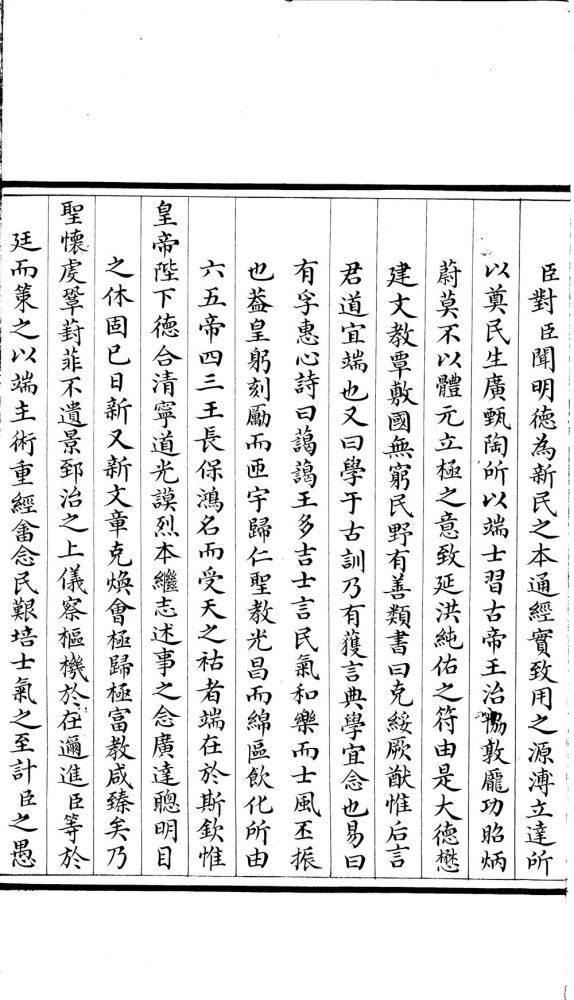 臣對臣聞明德為新民之本通經實致用之源溥立達所
以奠民生廣甄陶所以端士習古帝王治協敦龐功昭炳
蔚莫不以體元立極之意致延洪純佑之符由是大德懋
建文教覃敷國無窮民野有善類書曰克綏厥猷惟后言
君道宜端也又曰學于古訓乃有獲言典學宜念也易曰
有孚惠心詩曰藹藹王多吉士言民氣和樂而士風丕振
也葢皇躬刻勵而匝宇歸仁聖教光昌而綿區飲化所由
六五帝四三王長保鴻名而受天之祜者端在於斯欽惟
皇帝陛下德合清寧道光謨烈本繼志述事之念廣達聰明目
之休固已日新又新文章克煥會極歸極富教咸臻矣乃
聖懷虔鞏葑菲不遺景郅治之上儀察樞機於在邇進臣等於
廷而策之以端主術重經畬念民艱培士氣之至計臣之愚